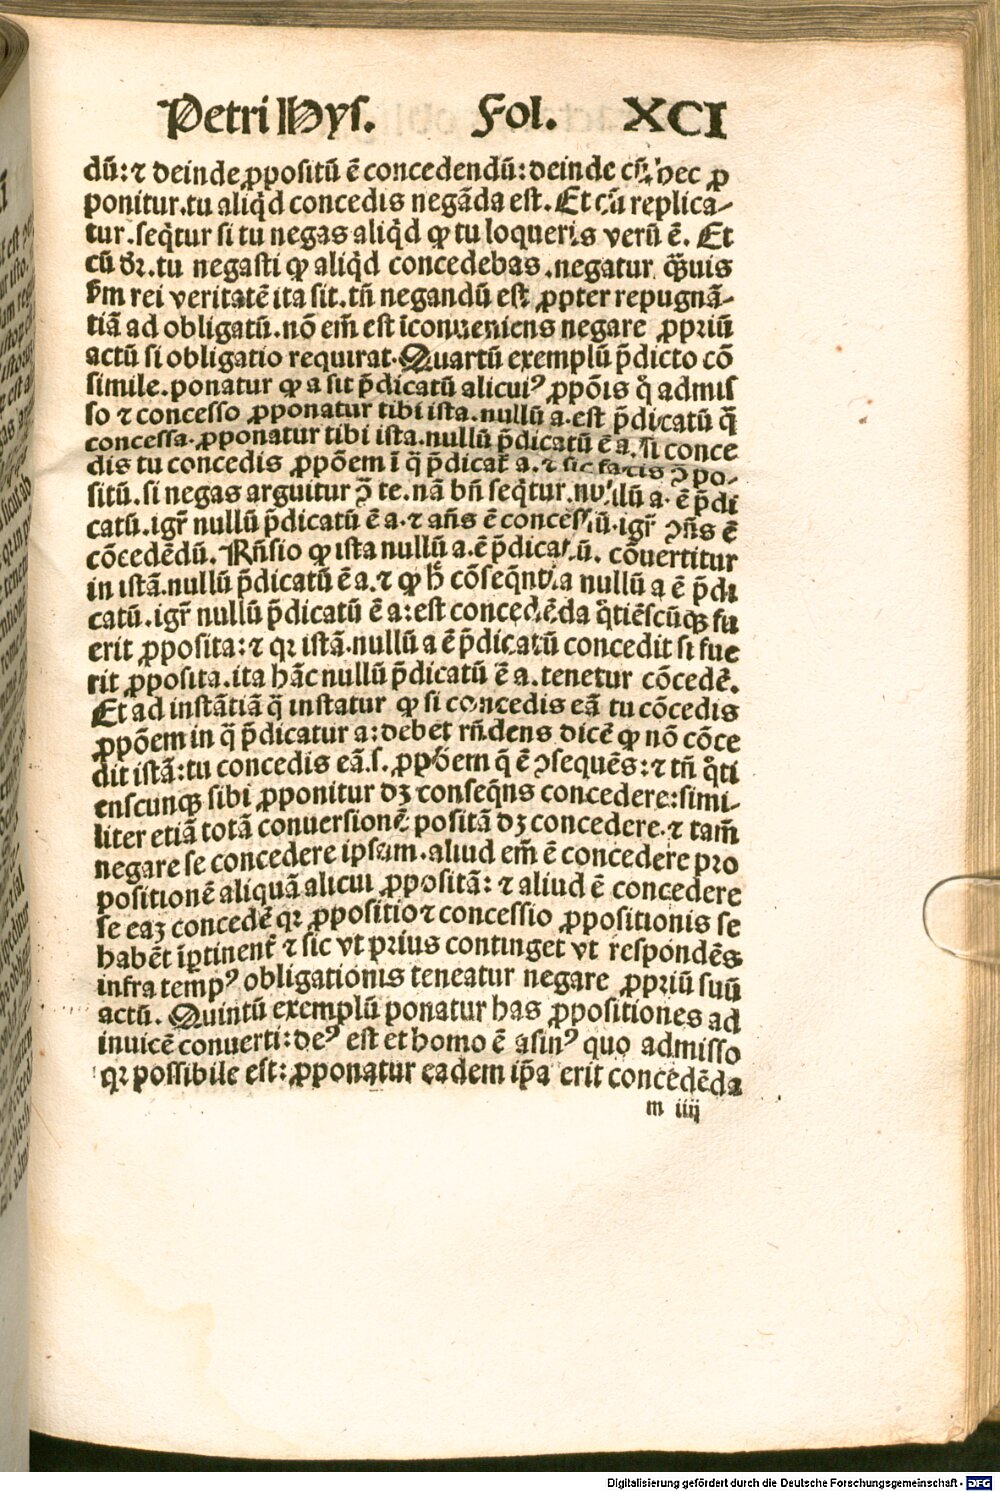 Petri Hys. Fol. XCI
dū: ⁊ deinde ꝓpositū ē concedendū: deinde cū hec ꝓ
ponitur. tu aliqͥd concedis negāda est. Et cū replica-
tur. seqͥtur si tu negas aliqͥd ꝙ tu loqueris verū ē. Et
cū dꝛ. tu negasti ꝙ aliqͥd concedebas. negatur q̄uis
ẜm rei veritatē ita sit. tn̄ negandū est ꝓpter repugnā-
tiā ad obligatū. nō em̄ est īconueniens negare ꝓpriū
actū si obligatio requirat. Quartū exemplū p̄dicto cō
simile. ponatur ꝙ a sit p̄dicatū alicuiꝰ ꝓpōis q̄ admis
so ⁊ concesso ꝓponatur tibi ista. nullū a. est p̄dicatū q̄
concessa. ꝓponatur tibi ista. nullū p̄dicatū ē a. si conce
dis tu concedis ꝓpōem ī q̄ p̄dicat̄ a. ⁊ sic facis ꝯ̄ po-
sitū. si negas arguitur ꝯ̄ te. nā bn̄ seqͥtur. nullū a. ē p̄di
catū. igr̄ nullū p̄dicatū ē a. ⁊ an̄s ē concessū. igr̄ ꝯn̄s ē
cōcedēdū. Rn̄sio ꝙ ista nullū a. ē p̄dicatū. cōuertitur
in istā. nullū p̄dicatū ē a. ⁊ ꝙ h̄ cōseqn̄tia nullū a ē p̄di
catū. igr̄ nullū p̄dicatū ē a: est concedēda q̄tiēscūqꝫ fu
erit ꝓposita: ⁊ qꝛ istā. nullū a ē p̄dicatū concedit si fue
rit ꝓposita. ita hāc nullū p̄dicatū ē a. tenetur cōcedē.
Et ad instātiā q̄ instatur ꝙ si concedis eā tu cōcedis
ꝓpōem in q̄ p̄dicatur a: debet rn̄dens dicē ꝙ nō cōce
dit istā: tu concedis eā. s. ꝓpōem q̄ ē ꝯsequēs: ⁊ tn̄ q̄ti
enscunqꝫ sibi ꝓponitur dꝫ conseqn̄s concedere: simi-
liter etiā totā conuersionē positā dꝫ concedere. ⁊ tam̄
negare se concedere ipsum. aliud em̄ ē concedere pro
positionē aliquā alicui ꝓpositā: ⁊ aliud ē concedere
se eaꝫ concedē qꝛ ꝓpositio ⁊ concessio ꝓpositionis se
habēt īꝑtinent̄ ⁊ sic vt prius continget vt respondēs
infra tempꝰ obligationis teneatur negare ꝓpriū suū
actū. Quintū exemplū ponatur has ꝓpositiones ad
inuicē conuerti: deꝰ est et homo ē asinꝰ quo admisso
qꝛ possibile est: ꝓponatur eadem ip̄a erit concedēda
m iiij
Digitalisierung gefördert durch die Deutsche Forschungsgemeinschaft - DFG